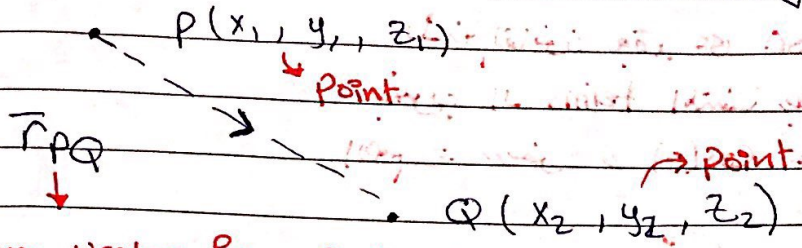 P(x₁, y₁, z₁)
Point
r̄PQ
Point.
Q(x₂, y₂, z₂)